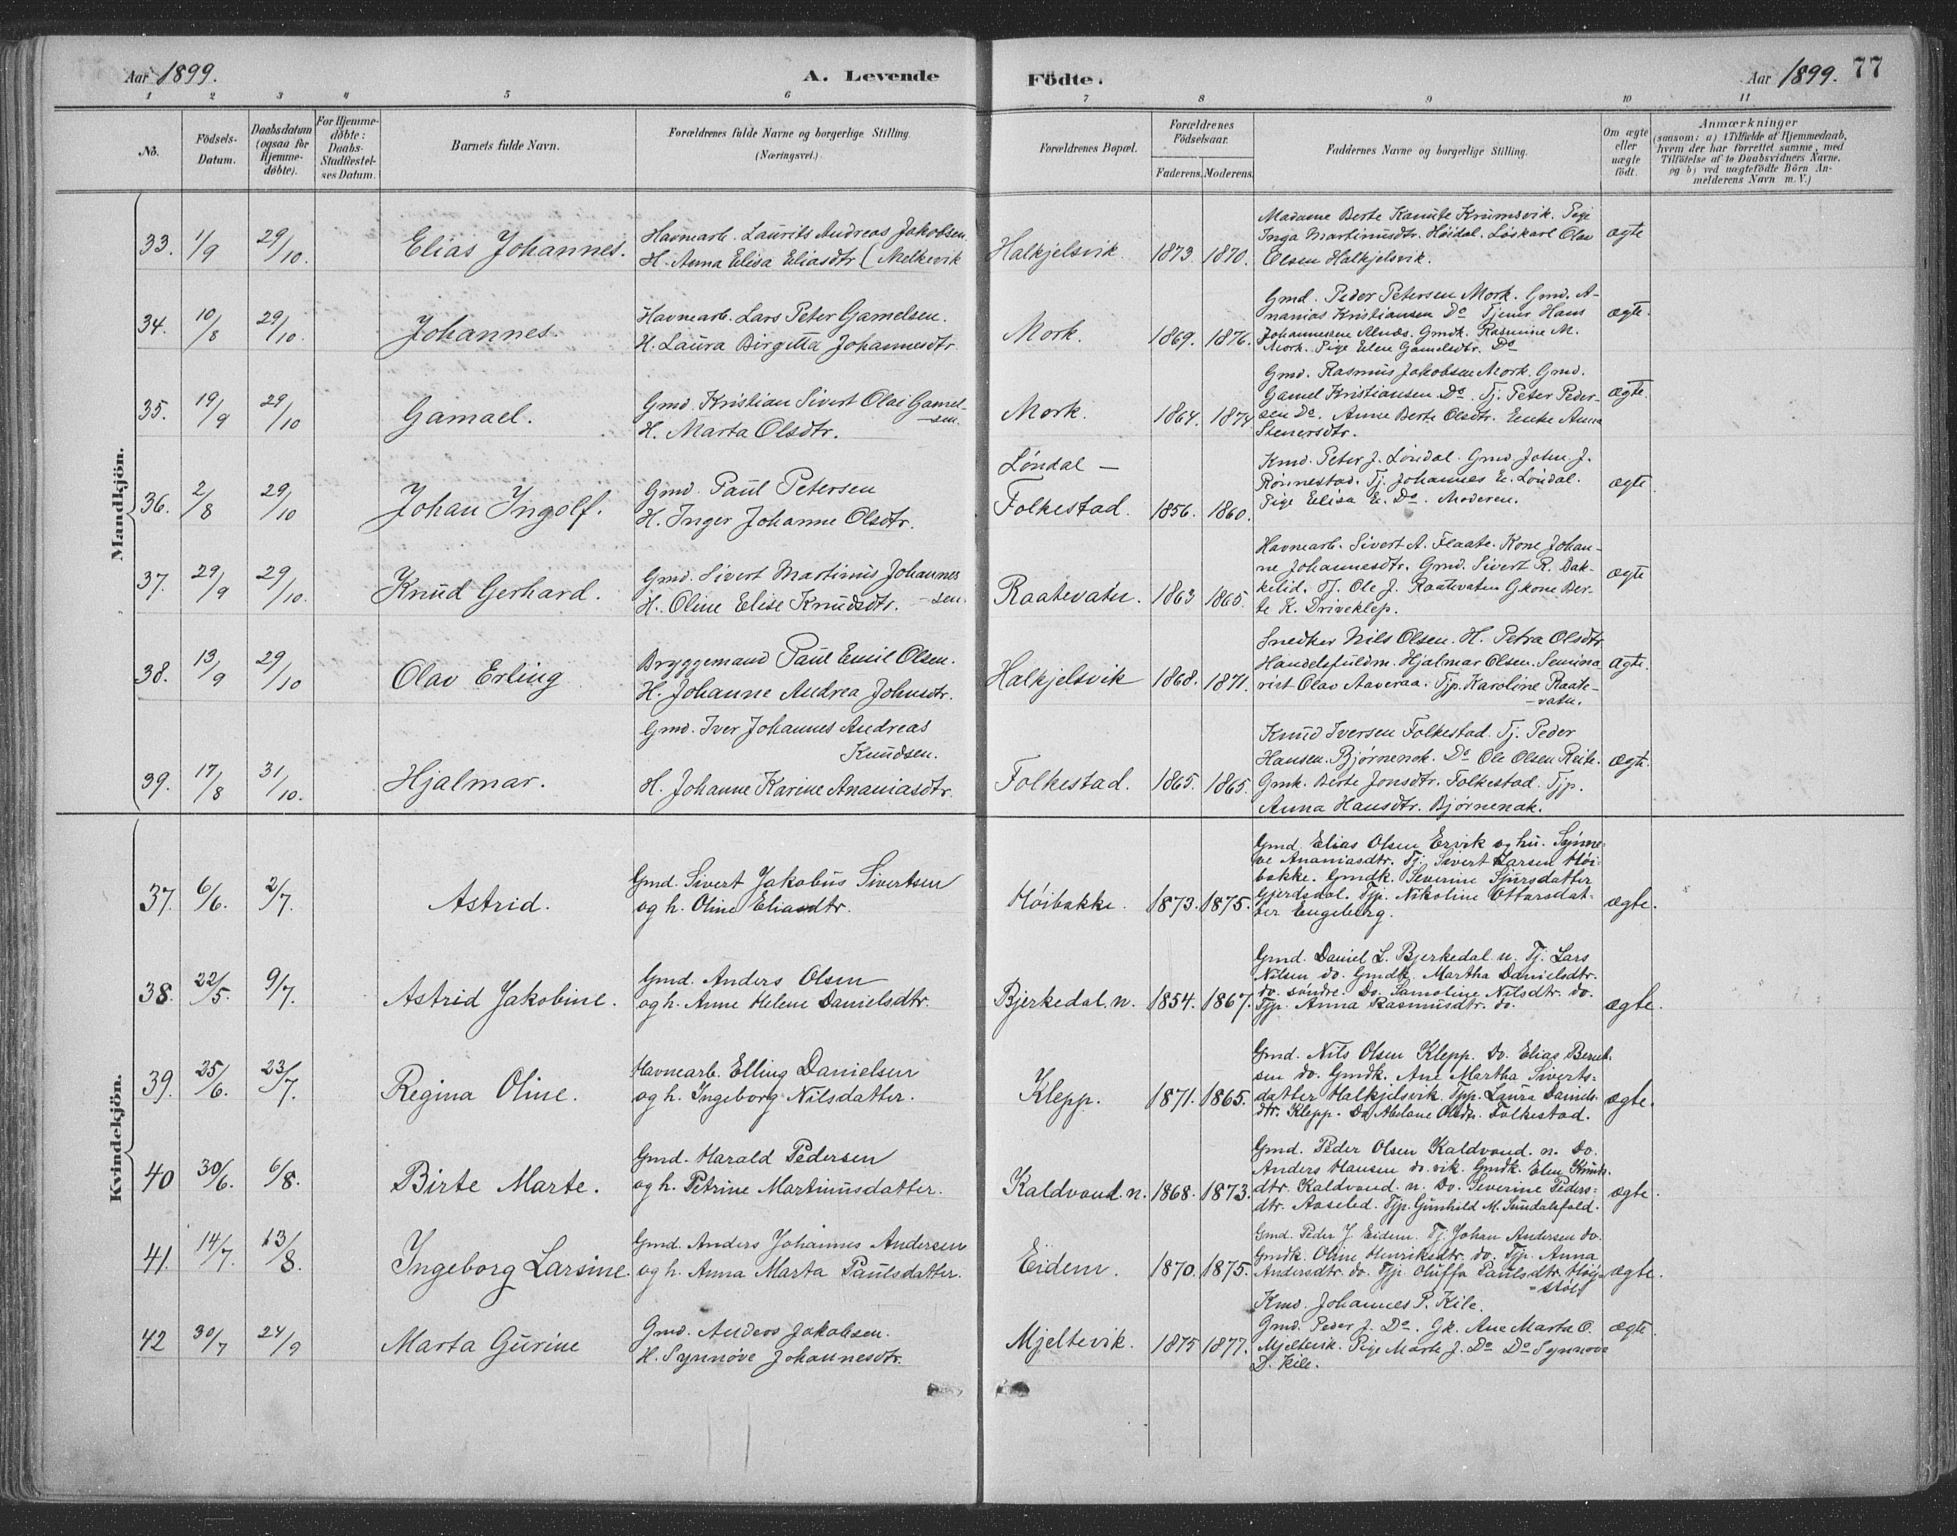 Aar 1899.
A. Levende
Födte.
Aar 1899. 77
1 2 3 4 5 6 7 8 9 10 11
No.
Födsels-
Datum.
Daabsdatum
(ogsaa for
Hjemme-
døbte).
For Hjemme-
døbte:
Daabs-
Stadfæstel-
ses Datum.
Barnets fulde Navn.
Forældrenes fulde Navne og borgerlige Stilling.
(Næringsvei.)
Forældrenes Bopæl.
Forældrenes
Födselsaar.
Faderens. Moderens.
Faddernes Navne og borgerlige Stilling.
Om ægte
eller
uægte
födt.
Anmærkninger
(saasom: a) i Tilfælde af Hjemmedaab,
hvem der har forrettet samme, med
Tilföielse af to Daabsvidners Navne.
og b) ved uægtefödte Börn An-
melderens Navn m. V.)
Mandkjön.
33. 1/9 29/10. Elias Johannes.
Havnearb. Laurits Andreas Jakobsen
H. Anna Elisa Eliasdtr (Melkevik
Halkjelsvik. 1873. 1870.
Madame Berte Kanute Krumsvik. Pige
Inga Martinusdtr. Høidal. Løskarl Olav
Olsen Halkjelsvik.
ægte
34. 10/8 29/10. Johannes.
Havnearb. Lars Peter Gamelsen.
H. Laura Birgitta Johannesdtr
Mork. 1869. 1876.
Gmd. Peder Petersen Mork. Gmd. A-
nanias Kristiansen Do Tjener Hans
Johannessen Alnæs. Gmdk. Rasmine M.
Mork. Pige Elen Gamelsdtr. Do
ægte.
35. 19/9 29/10 Gamael.
Gmd. Kristian Sivert Olav Gamel-
sen.
H. Marta Olsdtr.
Mork. 1864. 1874
Gmd. Rasmus Jakobsen Mork. Gmd.
Gamel Kristiansen Do. Tj. Peter Peder-
sen Do. Anne Berte Olsdtr. Enke Anna
Stenersdtr.
ægte.
36. 2/8 29/10 Johan Ingolf.
Gmd. Paul Petersen
H. Inger Johanne Olsdtr.
Løndal —
Folkestad. 1856. 1860.
Kmd. Peter J. Løndal. Gmd John J.
Rønnestad. Tj. Johannes E. Løndal.
Pige Elisa E. Do. Moderen.
ægte
37. 29/9 29/10. Knud Gerhard.
Gmd. Sivert Martinus Johannes
-sen.
H. Oline Elise Knudsdtr.
Raatevatn. 1863 1865.
Havnearb. Sivert A. Flaate. Kone Johan-
ne Johannesdtr. Gmd. Sivert R. Bak-
kelid. Tj. Ole J. Raatevatn Gkone Ber-
te K. Driveklep.
ægte
38. 13/9 29/10 Olav Erling
Bryggemand Paul Emil Olsen.
H. Johanne Andrea Johnsdtr.
Halkjelsvik 1868. 1871.
Snedker Nils Olsen. H. Petra Olsdtr
Handelsfuldm. Hjalmar Olsen. Semina-
rist Olav Aaveraa. Tjp. Karoline Raate-
-vatn.
Ægte.
39. 17/8 31/10. Hjalmar.
Gmd. Iver Johannes Andreas
Knudsen.
H. Johanne Karine Ananiasdtr.
Folkestad. 1865. 1865.
Knud Iversen Folkestad. Tj. Peder
Hansen. Bjørnenak. Do Ole Olsen Reite.
Gmk. Berte Jonsdtr. Folkestad. Tjp.
Anna Hansdtr. Bjørnenak.
ægte.
Kvindekjön.
37. 6/6. 2/7. Astrid.
Gmd. Sivert Jakobus Sivertsen
og h. Oline Eliasdtr.
Høibakke. 1873. 1875.
Gmd. Elias Olsen Ervik og hu. Synne-
ve Ananiasdtr. Tj. Sivert Larsen Høi-
bakke. Gmdk. Severine Sjursdatter
Gjerdsdal. Tjp. Nikoline Ottarsdat-
ter Engeberg.
ægte.
38. 22/5. 9/7. Astrid Jakobine.
Gmd. Anders Olsen
og h. Anne Helene Danielsdtr.
Bjerkedal. n. 1854. 1867.
Gmd. Daniel L. Bjerkedal n. Tj. Lars
Nilsen do. Gmdk. Martha Danielsdtr.
do. søndre. Do. Samoline Nilsdtr. do.
Tjp. Anna Rasmusdtr. do.
ægte.
39. 25/6. 23/7. Regina Oline.
Havnearb. Elling Danielsen
og h. Ingeborg Nilsdatter.
Klepp. 1871. 1865.
Gmd. Nils Olsen Klepp. Do. Elias Bernt-
sen do. Gmdk. Ane Martha Siverts-
datter Halkjelsvik. Tjp. Laura Daniels-
dtr. Klepp. Do Abelone Olsdtr. Folkestad.
ægte.
40 30/6. 6/8. Birte Marte.
Gmd. Harald Pedersen
og h. Petrine Martinusdatter.
Kaldvand. n. 1868. 1873.
Gmd. Peder Olsen Kaldvand. n. Do.
Anders Hansen do. vik. Gmdk. Elen Knuds-
dtr. Kaldvand. n. Do. Severine Peders-
dtr. Aaselid. Tjp. Gunhild M. Sundalsfold.
ægte.
41. 14/7. 13/8. Ingeborg Larsine.
Gmd. Anders Johannes Andersen
og h. Anna Marta Paulsdatter.
Eidem. 1870. 1875.
Gmd. Peder J. Eidem. Tj. Johan Andersen do.
Gmdk. Oline Henriksdtr. do. Tjp. Anna
Andersdtr. do. Tjp. Oluffa Paulsdtr. Høy-
støl.
ægte.
42 30/7 24/9 Marta Gurine
Gmd. Anders Jakobsen.
H. Synnøve Johannesdtr.
Mjeltevik. 1875 1877.
Kmd. Johannes P. Kile.
Gmd. Peder J. Do. Gk. Ane Marta O.
Mjeltevik. Pige Marte J. Do Do Synnøve
D. Kile.
ægte